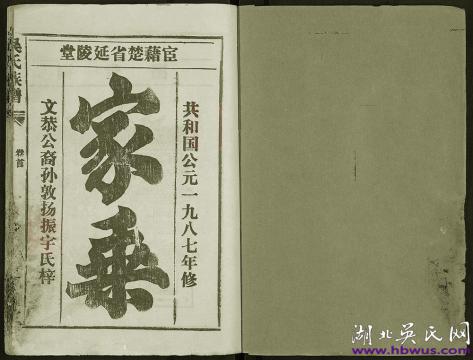 宦藉楚省延陵堂
共和国公元一九八七年修
家乘
文恭公裔孙敦扬振宇氏梓
吳氏族譜
卷首
湖北吴氏网
www.hbwus.com